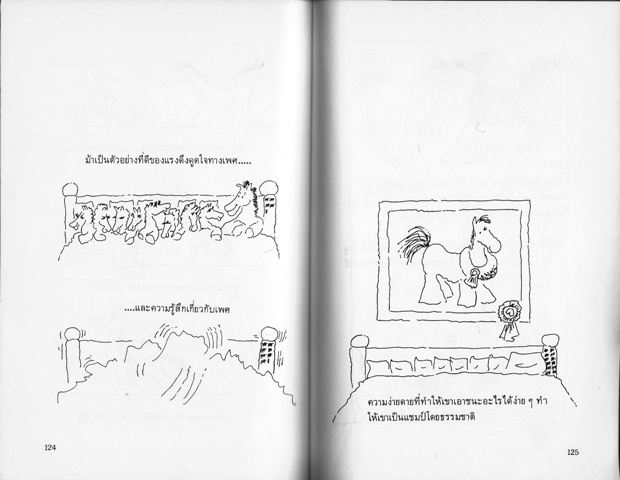 ม้าเป็นตัวอย่างที่ดีของแรงดึงดูดใจทางเพศ.....
....และความรู้สึกเกี่ยวกับเพศ
124
ความง่ายดายที่ทำให้เขาเอาชนะอะไรได้ง่าย ๆ ทำ
ให้เขาเป็นแชมป์โดยธรรมชาติ
125